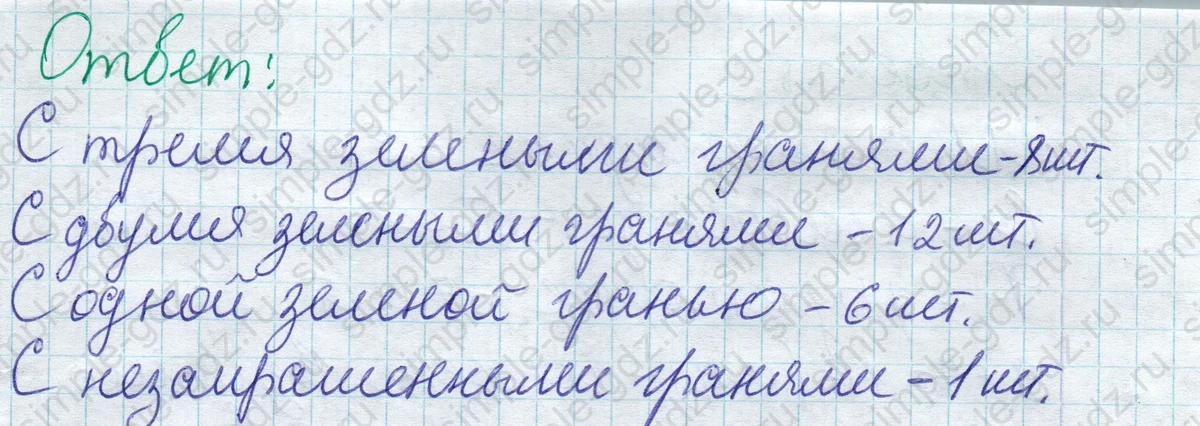 Ответ:
С тремя зелеными гранями - 8 шт.
С двумя зелеными гранями - 12 шт.
С одной зеленой гранью - 6 шт.
С незакрашенными гранями - 1 шт.